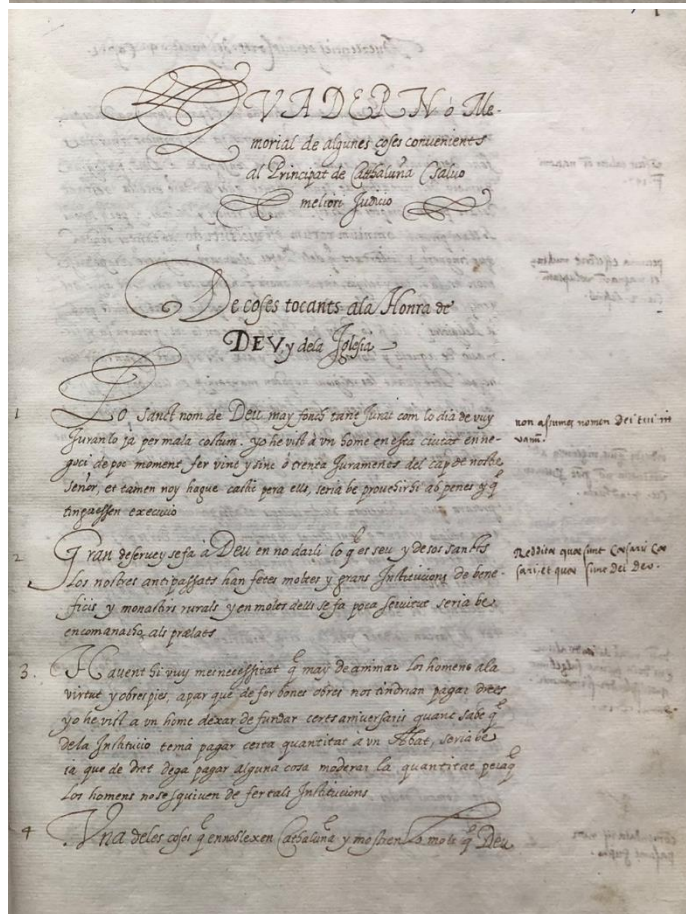 QVADERN ò Me-
morial de algunes coses convenients
al Principat de Cathaluña Csalvo
meliori Judicio
De coses tocants ala Honra de
DEV, y dela Iglesia
1 Lo Sanct nom de Deu may fonch tant Jurat com lo dia de vuy
Juranlo ia per mala costum. yo he vist à vn home en esta ciutat en ne-
goci de poc moment, fer vint y sinc ò trenta Juraments del cap de nostre
Señor, et tamen noy hague castic pera ells, seria be provehirhi ab penes y q̃
tinguessen execucio
non assumes nomen Dei tui in
vanũ.
2 Gran deservey se fa à Deu en no darli lo q̃ es seu y de sos sancts
Los nostres antipassats han fetes moltes y grans Institucions de bene-
ficis y monastirs rurals y en molts dells se fa poca servitut seria be
encomanarho, als prælats
Reddite quæ sunt Cæsaris Cæ
sari, et quæ sunt Dei Deo.
3. Havent hi vuy mes necessitat q̃ may de animar los homens ala
virtut y obres pies, apar que de fer bones obres nos tindrian pagar drets
yo he vist a vn home dexar de fundar certs aniversaris quant sabe q̃
dela Institucio tenia pagar certa quantitat à vn Abat, seria be
ia que de dret dega pagar alguna cosa moderar la quantitat peraq̃
Los homens no se squiven de fer tals Institucions
4 Vna deles coses q̃ ennoblexen Cathaluña y mostren lo molt q̃ Deu